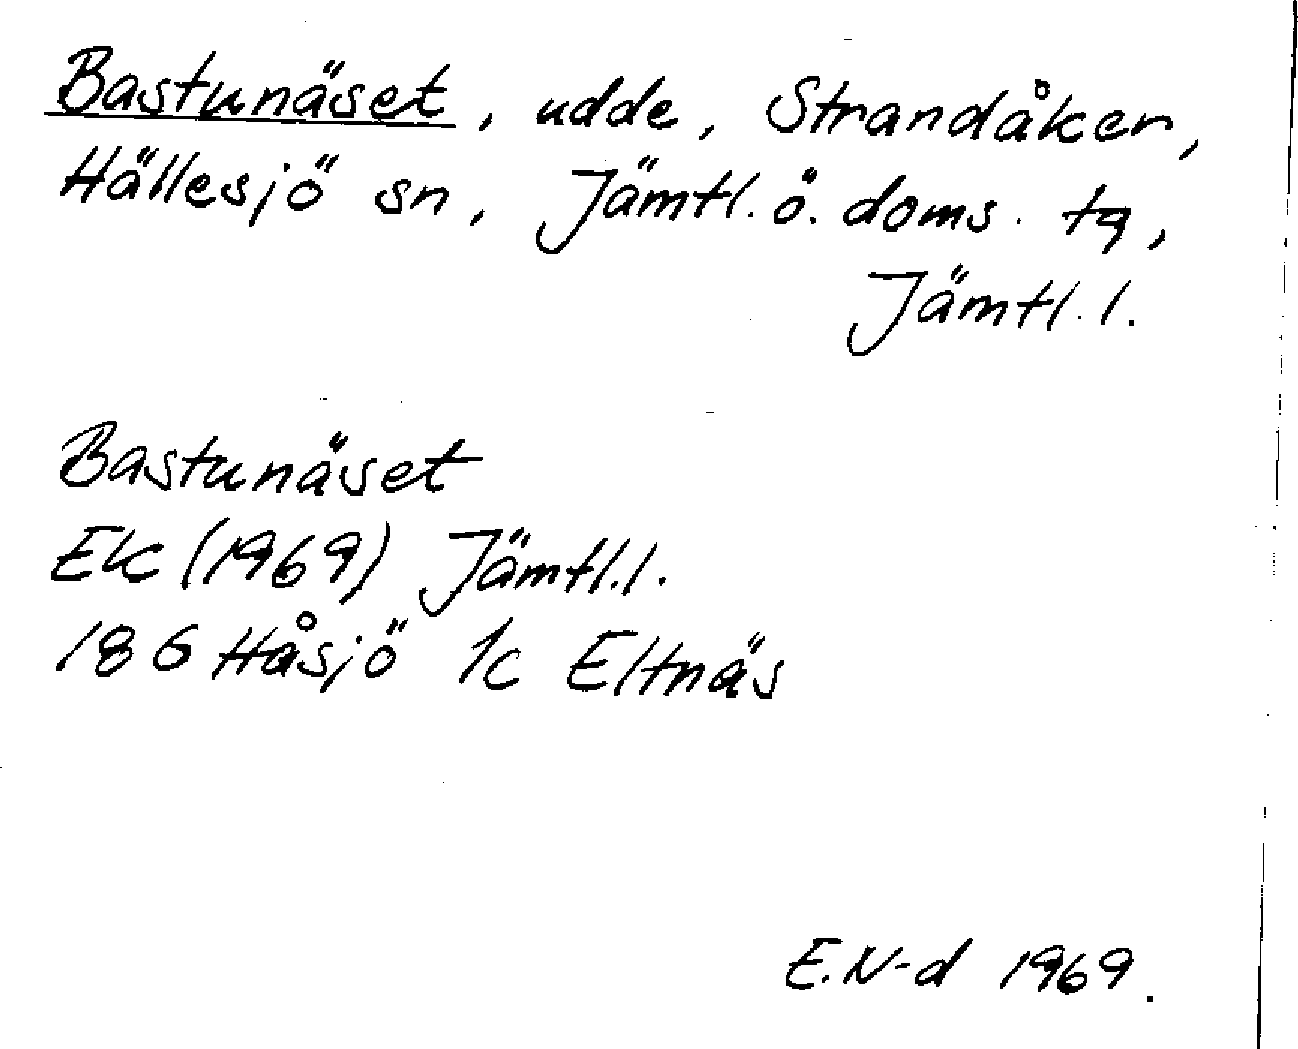 Bastunäset, udde, Strandåker,
Hällesjö sn, Jämtl. ö. doms. tg,
Jämtl. l.
Bastunäset
Ek (1969) Jämtl. l.
18 G Håsjö 1c Eltnäs
E. N-d 1969.